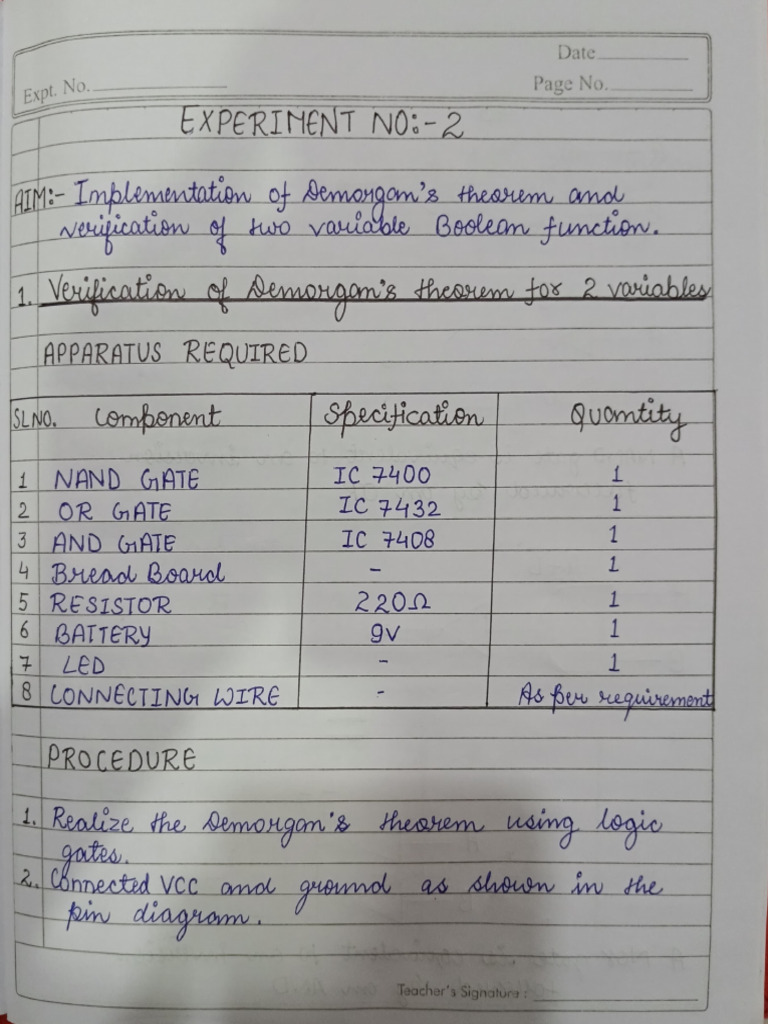 Date
Expt. No.
Page No.
EXPERIMENT NO:-2
AIM:- Implementation of Demorgan's theorem and
verification of two variable Boolean function.
1. Verification of Demorgan's theorem for 2 variables
APPARATUS REQUIRED
SLNO. Component Specification Quantity
1 NAND GATE IC 7400 1
2 OR GATE IC 7432 1
3 AND GATE IC 7408 1
4 Bread Board - 1
5 RESISTOR 220Ω 1
6 BATTERY 9V 1
7 LED - 1
8 CONNECTING WIRE - As per requirement
PROCEDURE
1. Realize the Demorgan's theorem using logic
gates.
2. Connected VCC and ground as shown in the
pin diagram.
Teacher's Signature :